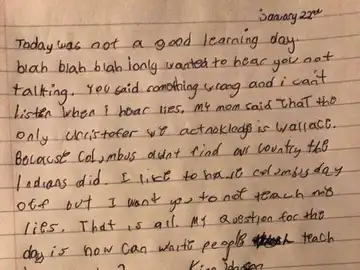 January 22nd
Today was not a good learning day.
blah blah blah i only wanted to hear you not
talking. You said something wrong and i can't
listen when i hear lies. My mom said That the
only christofer we acknoledg is wallace.
Because Columbus didnt find our country the
Indians did. I like to have columbus day
off but I want you to not teach me
lies. That is all. My question for the
day is how can white people teach
King Johnson